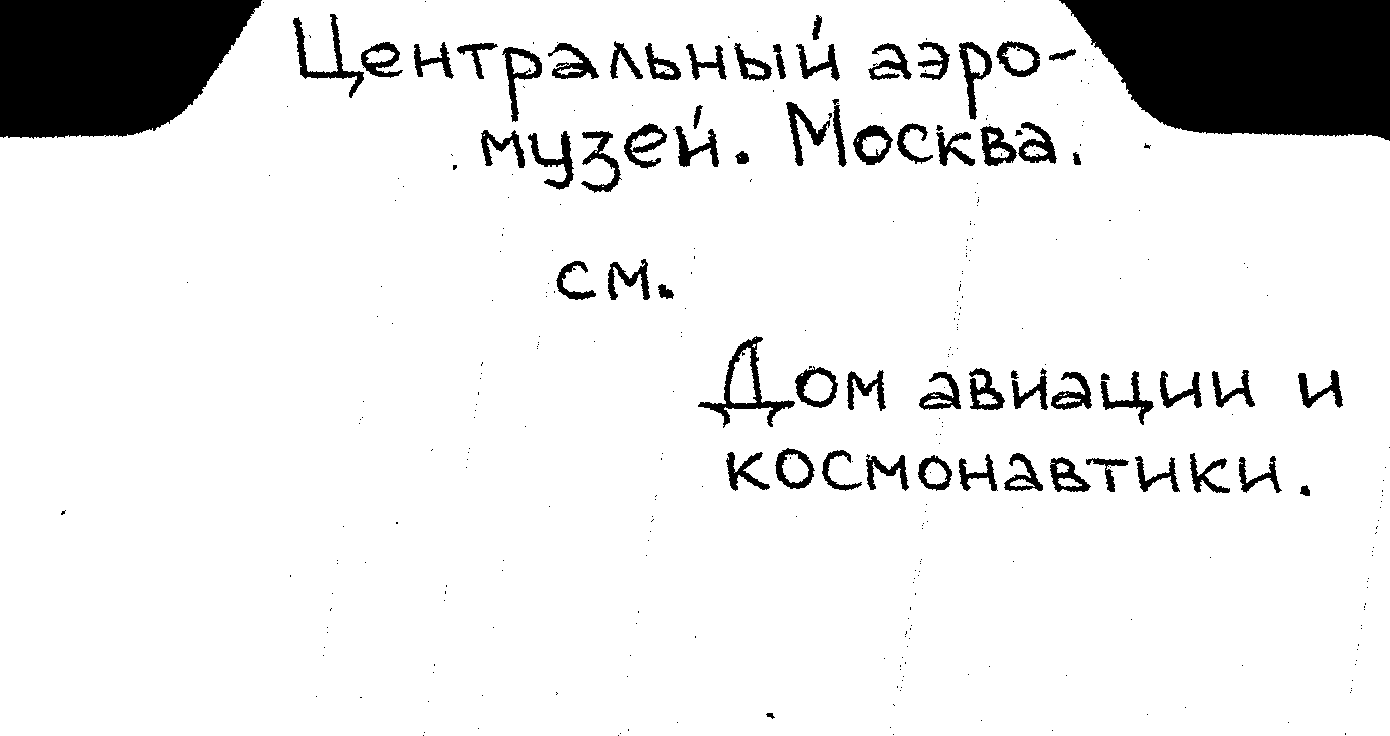 Центральный аэро-
музей. Москва.
см.
Дом авиации и
космонавтики.